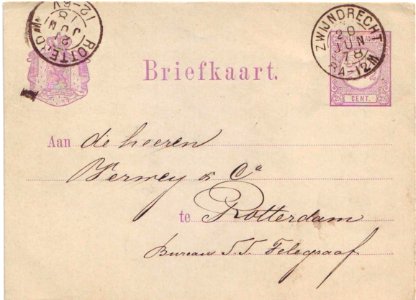 ROTTERDAM
21
JUN
78
12-6V
ZWIJNDRECHT
20
JUN
78
8A-12M
Briefkaart.
CENT.
Aan de heeren
Verwey & Co
te Rotterdam
Bureau Telegraaf